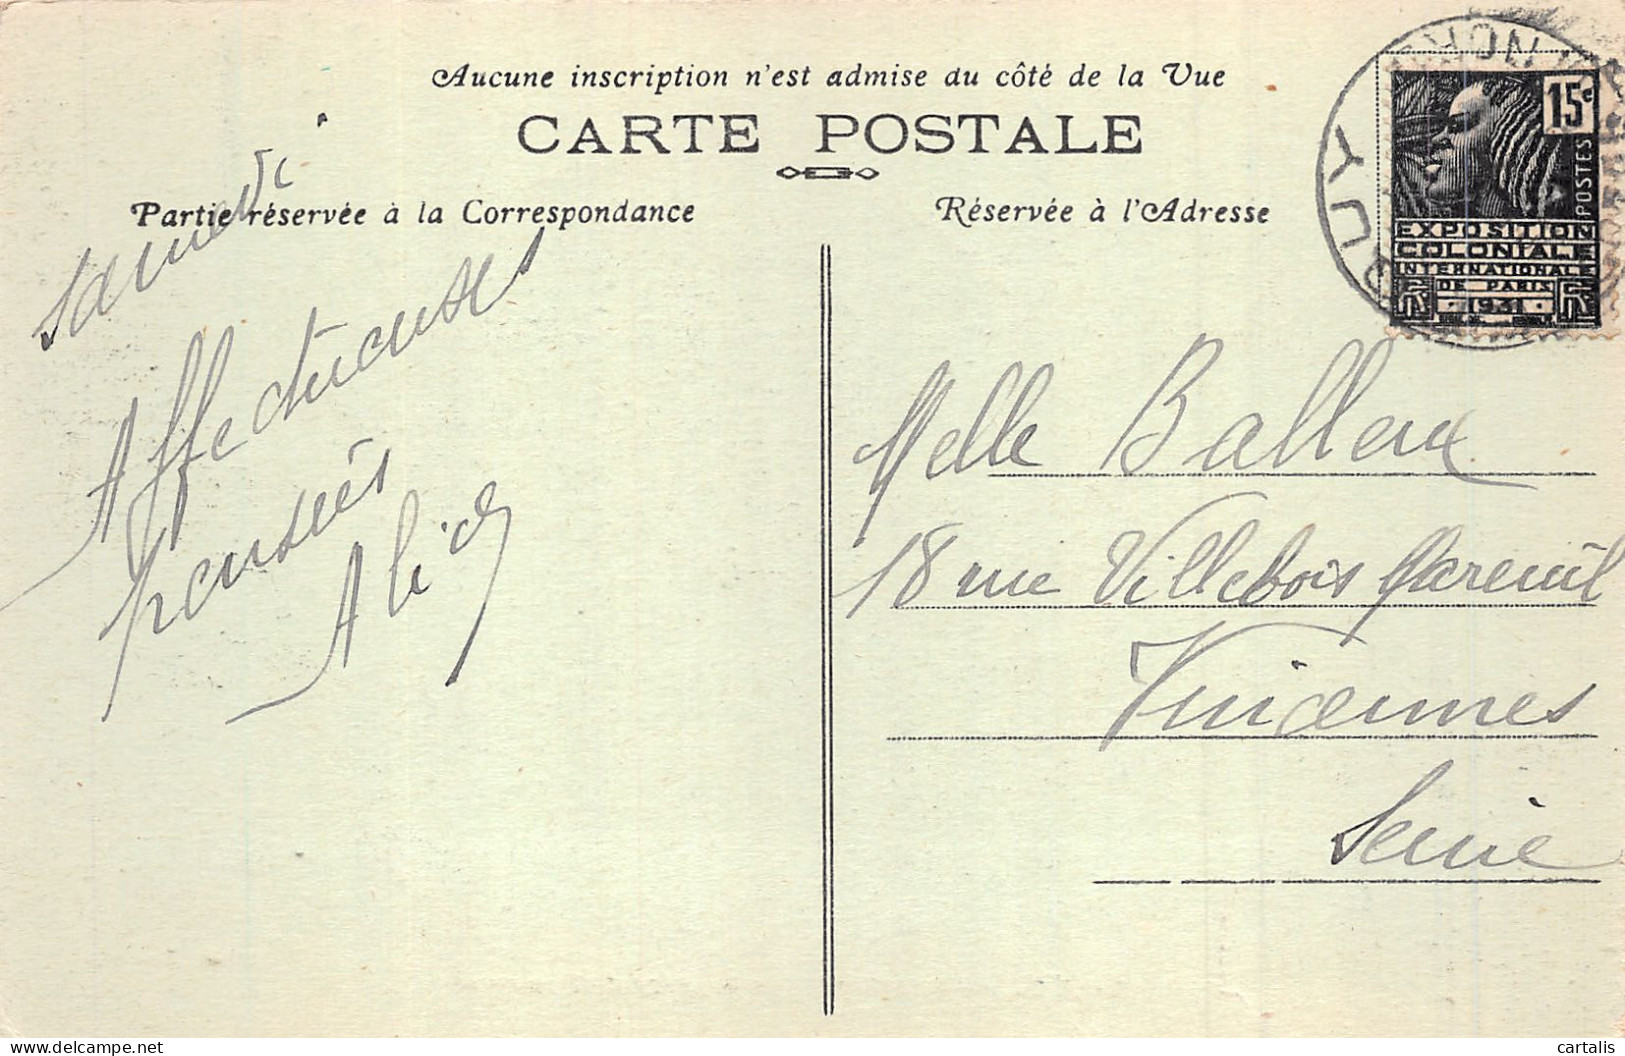 Aucune inscription n'est admise du côté de la Vue
CARTE POSTALE
Partie réservée à la Correspondance
Réservée à l'Adresse
15c
POSTES
EXPOSITION
COLONIALE
INTERNATIONALE
DE PARIS
1931
samedi
Affectueuses
pensées
Alice
Melle Balleux
18 rue Villebois Mareuil
Vincennes
Seine
cartalis